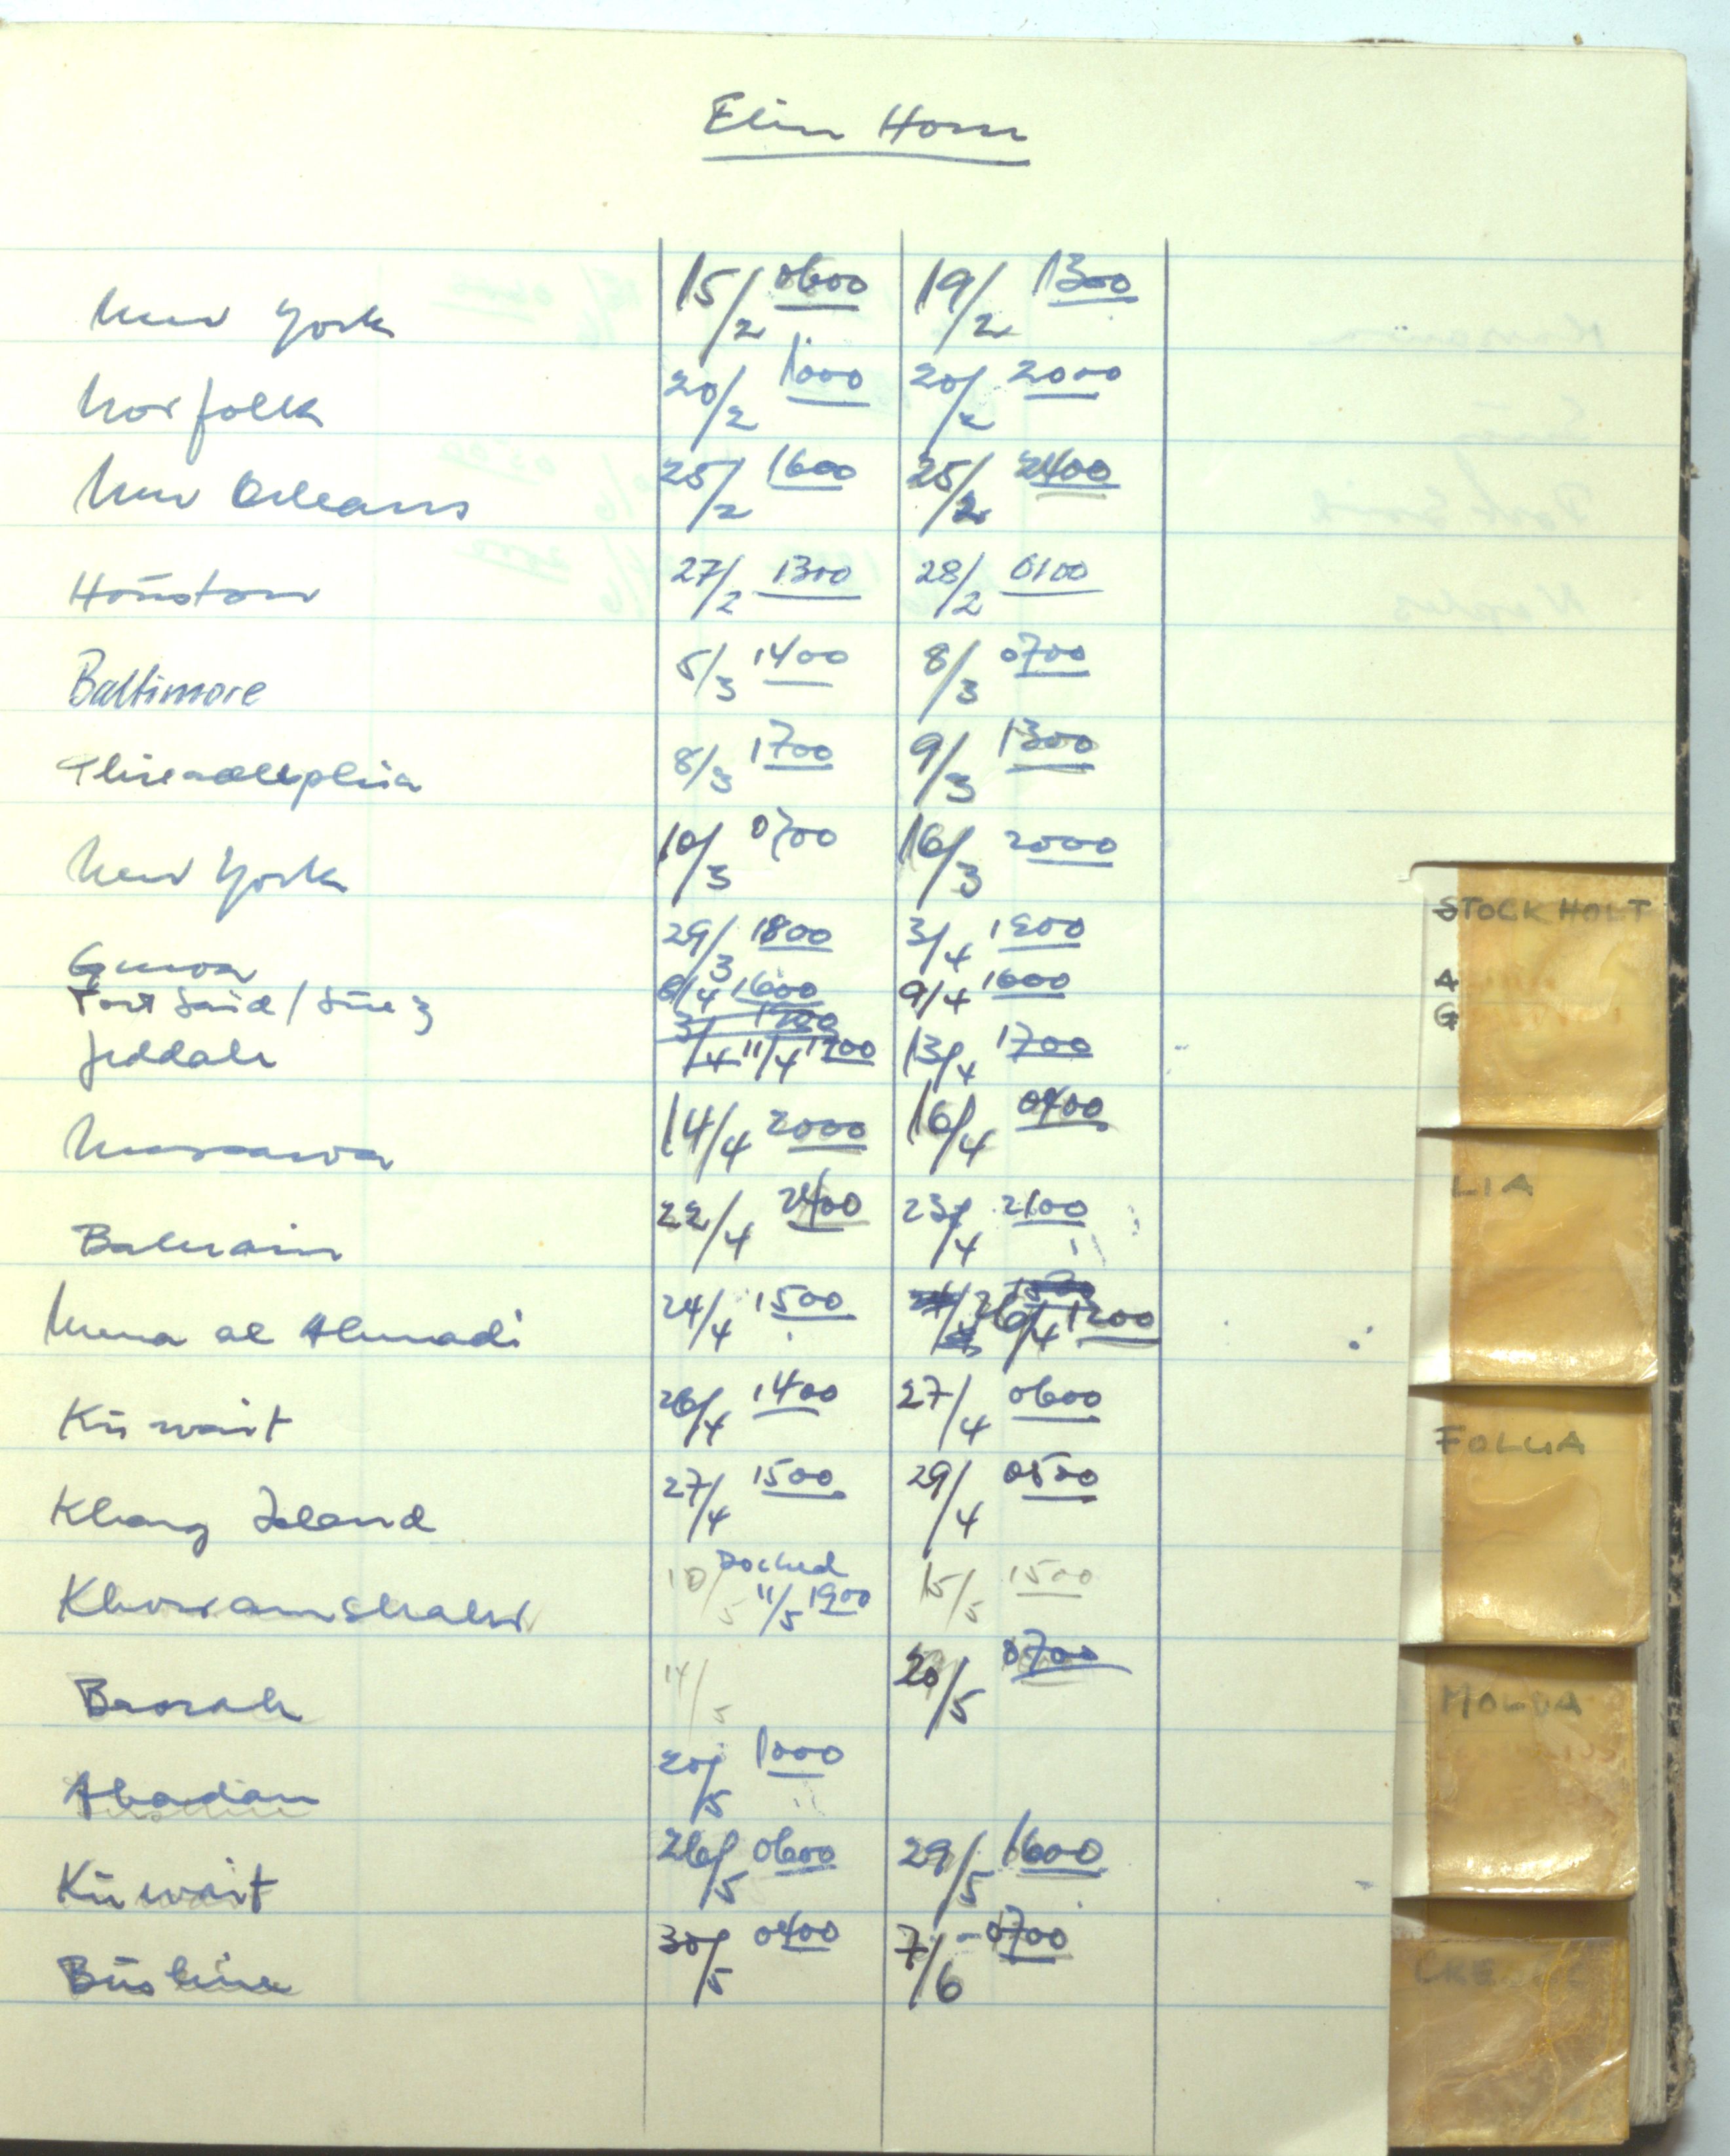 Elin Horn
New York 15/2 0600 19/2 1300
Norfolk 20/2 1000 20/2 2000
New Orleans 25/2 1600 25/2 2400
Houston 27/2 1300 28/2 0100
Baltimore 5/3 1400 8/3 0700
Phileadelphia 8/3 1700 9/3 1300
New York 10/3 0700 16/3 2000
Genoa 29/3 1800 3/4 1900
Port Said / Suez 8/4 1600 9/4 1600
Jeddah 11/4 1700 13/4 1700
Massawa 14/4 2000 16/4 0400
Bahrain 22/4 2400 23/4 2100
Mena al Ahmadi 24/4 1500 26/4 1200
Kuwait 26/4 1400 27/4 0600
Kharg Island 27/4 1500 29/4 0500
Khorramshahr 10/5 Docked 11/5 1900 15/5 1500
Basrah 14/5 20/5 0700
Abadan 20/5 1000
Kuwait 26/5 0600 29/5 1600
Bushire 30/5 0400 7/6 0700
STOCKHOLT
A
G
LIA
FOLGA
MOLDA